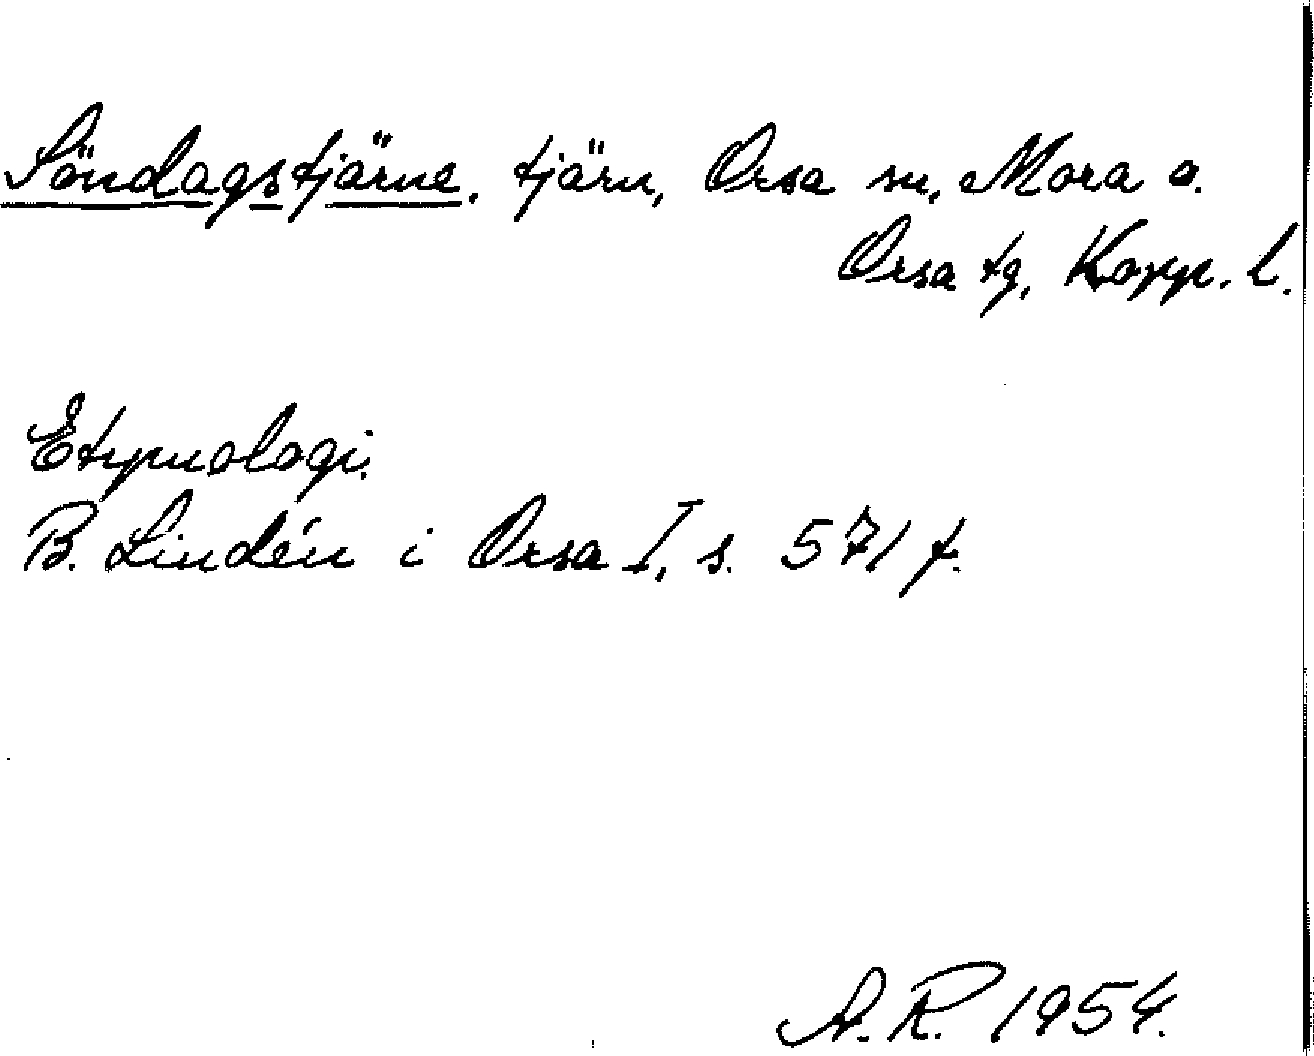 Söndagstjärne, tjärn, Orsa sn, Mora o.
Orsa tg, Kopp. l.
Etymologi.
B. Lindén i Orsa I, s. 571 f.
A. R. 1954.